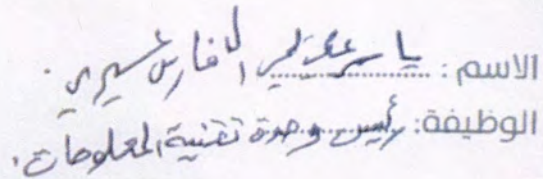 الاسم: ياسر علي الفارس عسيري.
الوظيفة: رئيس وحدة تقنية المعلومات.